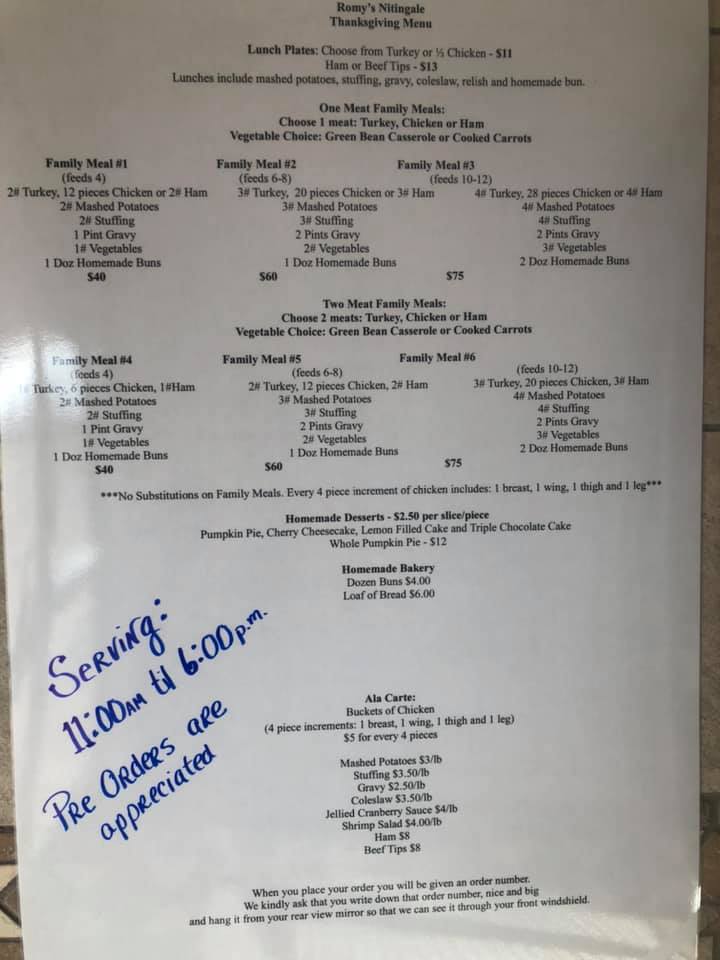 Romy's Nitingale
Thanksgiving Menu
Lunch Plates: Choose from Turkey or ½ Chicken - $11
Ham or Beef Tips - $13
Lunches include mashed potatoes, stuffing, gravy, coleslaw, relish and homemade bun.
One Meat Family Meals:
Choose 1 meat: Turkey, Chicken or Ham
Vegetable Choice: Green Bean Casserole or Cooked Carrots
Family Meal #1 Family Meal #2 Family Meal #3
(feeds 4) (feeds 6-8) (feeds 10-12)
2# Turkey, 12 pieces Chicken or 2# Ham 3# Turkey, 20 pieces Chicken or 3# Ham 4# Turkey, 28 pieces Chicken or 4# Ham
2# Mashed Potatoes 3# Mashed Potatoes 4# Mashed Potatoes
2# Stuffing 3# Stuffing 4# Stuffing
1 Pint Gravy 2 Pints Gravy 2 Pints Gravy
1# Vegetables 2# Vegetables 3# Vegetables
1 Doz Homemade Buns 1 Doz Homemade Buns 2 Doz Homemade Buns
$40 $60 $75
Two Meat Family Meals:
Choose 2 meats: Turkey, Chicken or Ham
Vegetable Choice: Green Bean Casserole or Cooked Carrots
Family Meal #4 Family Meal #5 Family Meal #6
(feeds 4) (feeds 6-8) (feeds 10-12)
1# Turkey, 6 pieces Chicken, 1#Ham 2# Turkey, 12 pieces Chicken, 2# Ham 3# Turkey, 20 pieces Chicken, 3# Ham
2# Mashed Potatoes 3# Mashed Potatoes 4# Mashed Potatoes
2# Stuffing 3# Stuffing 4# Stuffing
1 Pint Gravy 2 Pints Gravy 2 Pints Gravy
1# Vegetables 2# Vegetables 3# Vegetables
1 Doz Homemade Buns 1 Doz Homemade Buns 2 Doz Homemade Buns
$40 $60 $75
***No Substitutions on Family Meals. Every 4 piece increment of chicken includes: 1 breast, 1 wing, 1 thigh and 1 leg***
Homemade Desserts - $2.50 per slice/piece
Pumpkin Pie, Cherry Cheesecake, Lemon Filled Cake and Triple Chocolate Cake
Whole Pumpkin Pie - $12
Homemade Bakery
Dozen Buns $4.00
Loaf of Bread $6.00
Serving:
11:00am til 6:00p.m.
Pre Orders are
appreciated
Ala Carte:
Buckets of Chicken
(4 piece increments: 1 breast, 1 wing, 1 thigh and 1 leg)
$5 for every 4 pieces
Mashed Potatoes $3/lb
Stuffing $3.50/lb
Gravy $2.50/lb
Coleslaw $3.50/lb
Jellied Cranberry Sauce $4/lb
Shrimp Salad $4.00/lb
Ham $8
Beef Tips $8
When you place your order you will be given an order number.
We kindly ask that you write down that order number, nice and big
and hang it from your rear view mirror so that we can see it through your front windshield.